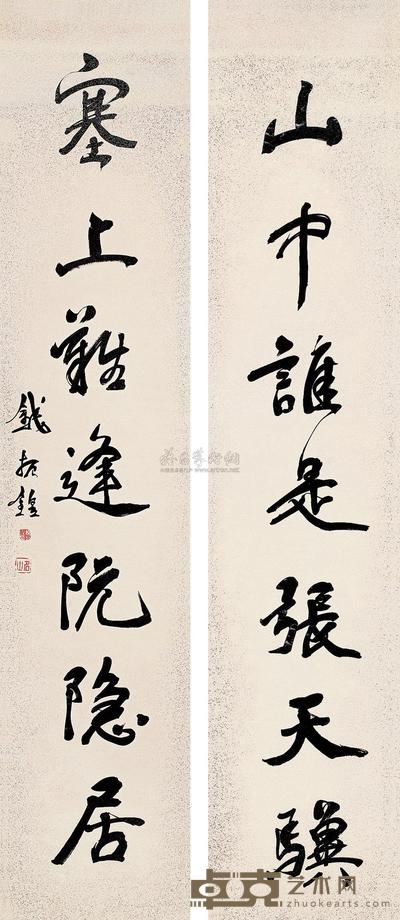 山中誰是張天驥
塞上難逢阮隐居
錢振鍠
名山
卓克艺术网
www.zhuokearts.com